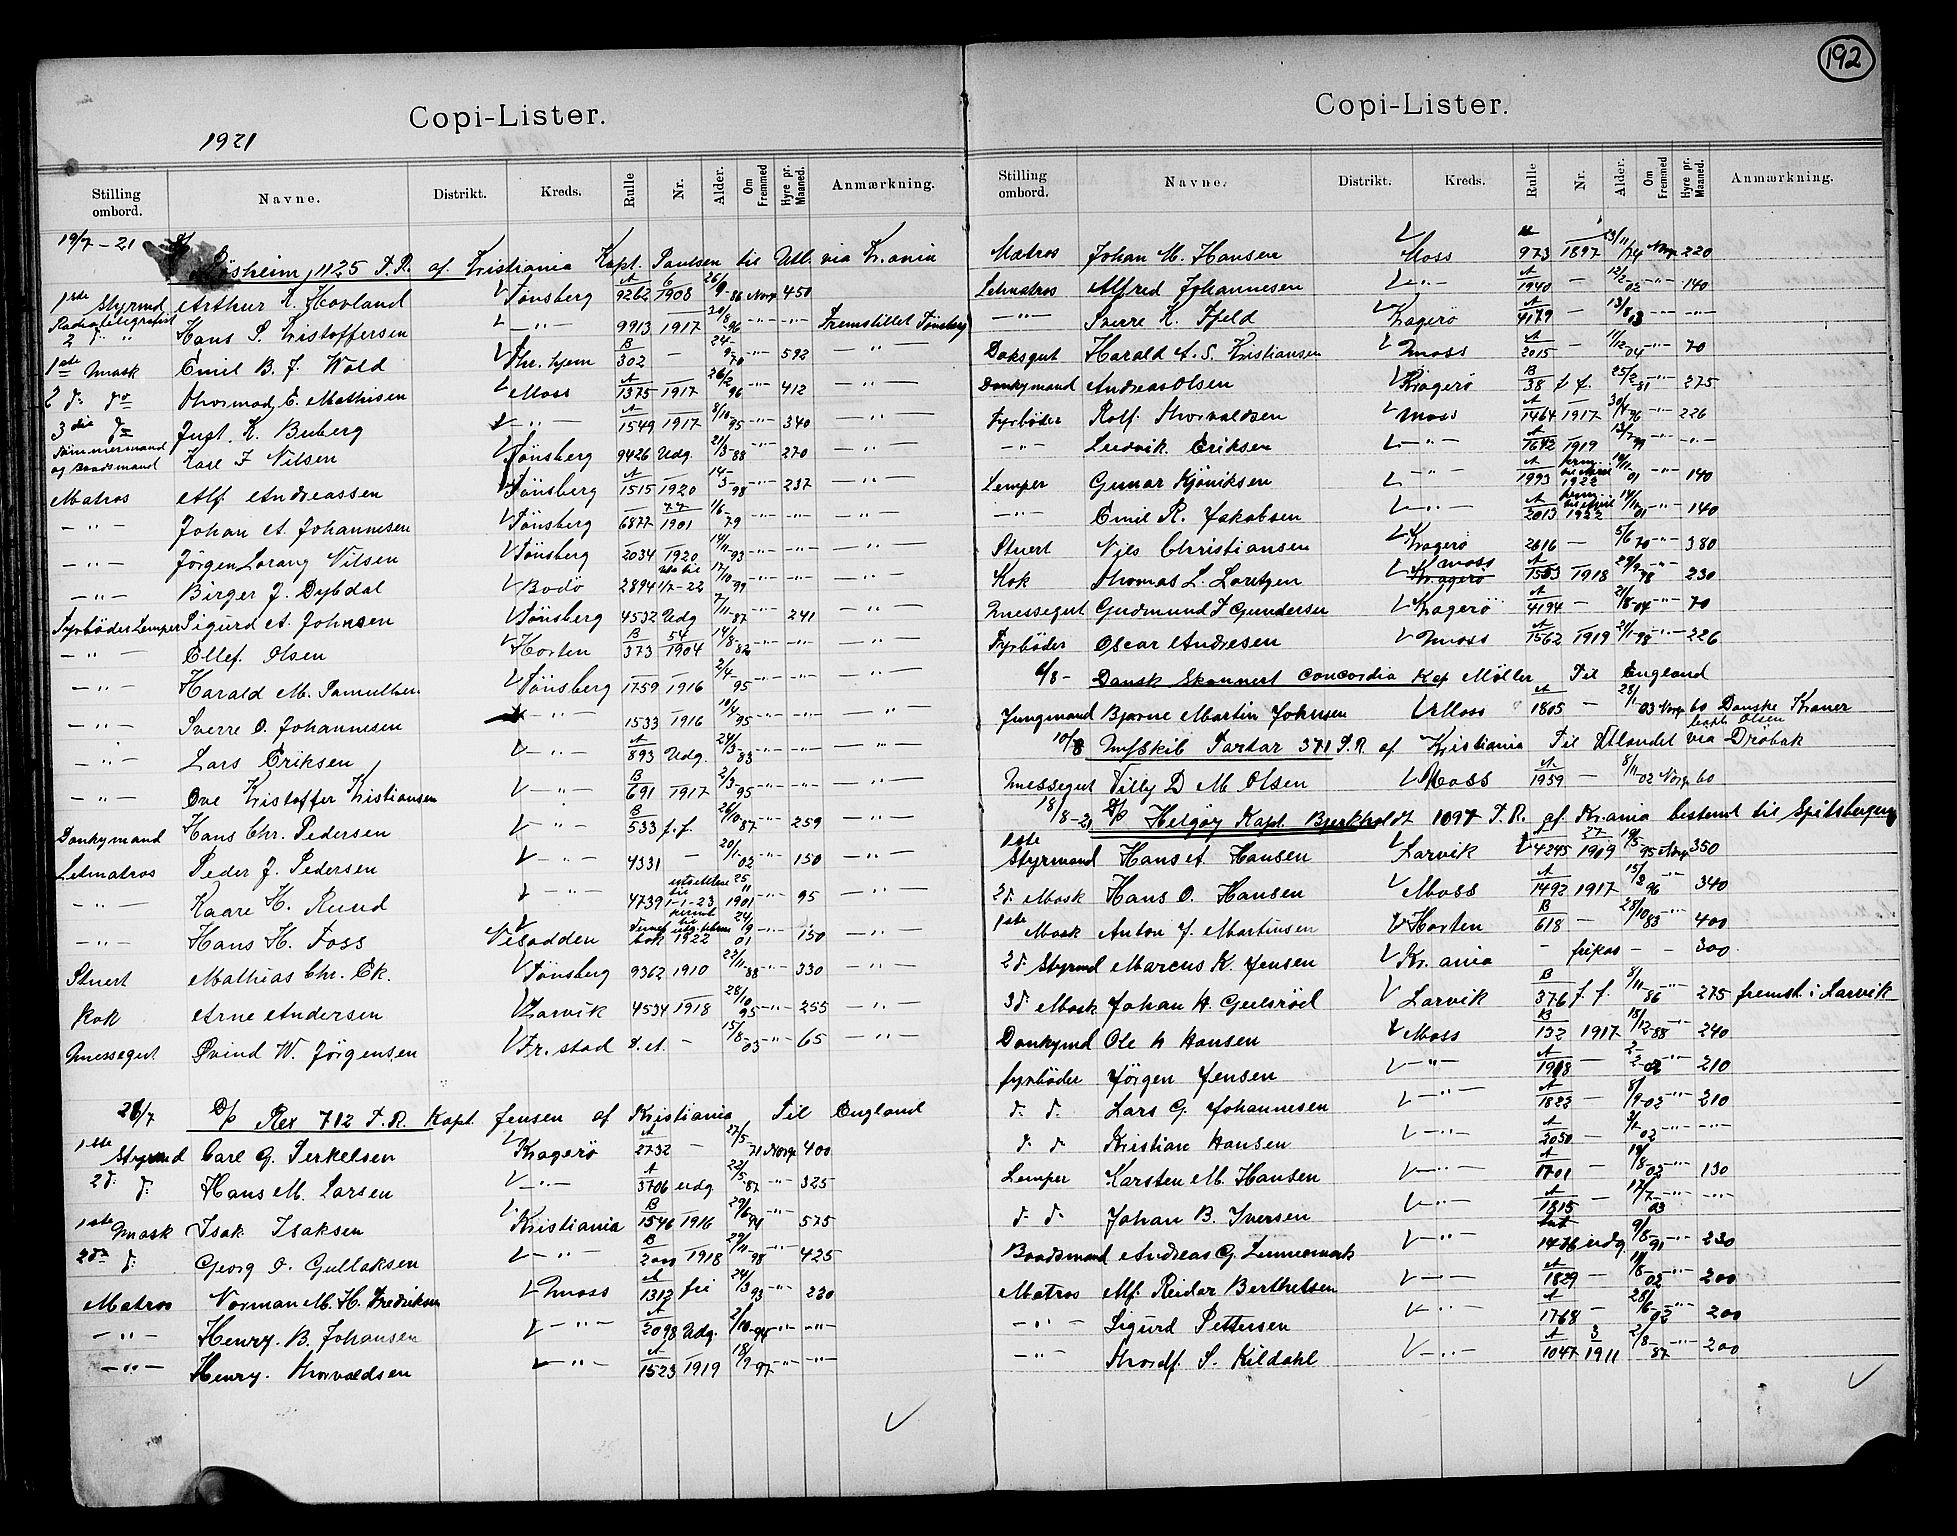 192
Copi-Lister.
1921
Stilling ombord. Navne. Distrikt. Kreds. Rulle Nr. Alder. Om Fremmed Hyre pr. Maaned. Anmærkning.
19/7-21 1125 T.R. af Kristiania Kapt. Paulsen til Utl. via Kr.ania
1ste Styrmd Arthur K. Hovland V Tønsberg A 9262 6 1908 26/9-86 Norg 450
Radiotelegrafist Hans S. Kristoffersen V —"— 9913 1917 20/8-96 —"— —"— Fremstillet Tønsberg
1ste Mask Emil B. J. Wold V Thr.hjem B 302 — 24-9/70 —"— 592 —"—
2 d: do Thormod E. Mathisen V Moss A 1375 1917 26/2 96 —"— 412 —"—
3die do Just. K. Buberg V —"— A 1549 1917 8/10 95 —"— 340 —"—
Tømmermand og Baadsmand Karl F Nilsen V Tønsberg 9426 Udg. 21/3-88 —"— 270 —"—
Matros Alf. Andreassen V Tønsberg A 1515 1920 14-3-98 —"— 237 —"—
—"— Johan A. Johannesen V Tønsberg 6877 77 1901 1/6-79 —"— —"— —"—
—"— Jørgen Lorang Nilsen V Tønsberg 2034 1920 14/11-93 —"— —"— —"—
—"— Birger J. Dybdal V Bodö 2894 1/2-22 17/10-99 —"— —"— —"—
Fyrbøder Lemper Sigurd A. Johnsen V Tønsberg 4532 Udg 7/11-87 —"— 241 —"—
—"— Ellef. Olsen V Horten B 373 54 1904 14/8 82 —"— —"— —"—
—"— Harald M. Samuelsen V Tønsberg 1759 1916 2/4-95 —"— —"— —"—
—"— Sverre O. Johannesen —"— 1533 1916 10/4-95 —"— —"— —"—
—"— Lars Eriksen V —"— A 893 Udg. 24/3-83 —"— —"— —"—
—"— Ove Kristoffer Kristiansen V —"— B 691 1917 2/3-95 —"— —"— —"—
Donkymand Hans Chr. Pedersen V —"— B 533 f.f. 26/10 87 —"— 259 —"—
Letmatros Peder J. Pedersen V —"— 4331 — 20/1-02 —"— 150 —"—
—"— Kaare H. Rund V —"— 4739 til 1-1-23 25 11 1901 —"— 95 —"—
—"— Hans H. Foss V bok 1922 24/9 01 —"— 150 —"—
Stuert Mathias Chr. Ek. V Tønsberg 9362 1910 22/11-88 —"— 330 —"—
Kok Arne Andersen V Larvik 4534 1918 28/10 95 —"— 255 —"—
Messegut Øvind W. Jörgensen V Fr.stad — 15/8-03 —"— 65 —"—
26/7 D/S Rex 712 T.R. Kapt. Jensen af Kristiania Til England
1ste Styrmd Carl G. Terkelsen V Kragerö A 2732 — 27/5 71 Norg 400
2d: d: Hans M. Larsen V —"— A 3706 udg 22/5 87 —"— 325
1ste Mask Isak Isaksen V Kristiania B 1546 1916 29/6 94 —"— 575
2den d: Georg O. Gullaksen V —"— B 2000 1918 29/11-98 —"— 425
Matros Norman M. H. Fredriksen V Moss A 1312 fri 24/3 93 —"— 220
—"— Henry. B. Johansen V —"— A 2098 Udg. 2/10-94 —"— —"—
—"— Henry. Thorvaldsen V —"— A 1523 1919 18/7-97 —"— —"—
Copi-Lister.
Stilling ombord. Navne. Distrikt. Kreds. Rulle Nr. Alder. Om Fremmed Hyre pr. Maaned. Anmærkning.
Matros Johan M. Hansen V Moss 973 1897 23/11/74 Norg 220
Letmatros Alfred Johannesen V —"— A 1940 — 12/2-02 —"— 140
—"— Sverre K. Fjeld V Kragerö A 4179 — 13/8 03 —"— —"—
Dæksgut Harald A. S. Kristiansen V Moss A 2015 — 11/12 04 —"— 70
Donkymand Andreas Olsen V Kragerö B 38 f.f. 25/2-81 —"— 275
Fyrbøder Rolf. Thorvaldsen V Moss A 1464 1917 30/4-96 —"— 226
—"— Ludvik. Eriksen V —"— A 1642 1919 13/7 99 —"— —"—
Lemper Gunar Kjöniksen V —"— A 1993 1922 19/11 01 —"— 140
—"— Emil R. Jakobsen V —"— A 2013 1922 14/11-01 —"— 140
Stuert Nils Christiansen V Kragerö 2616 — 5/6 70 —"— 380
Kok Thomas L. Lorntzen V Moss A 1553 1918 29/9-78 —"— 230
Messegut Gudmund F Gundersen V Kragerö A 4194 — 21/8-04 —"— 70
Fyrbøder Oscar Andresen V Moss A 1562 1919 21/1-98 —"— 226
6/8- Dansk Skonnert Concordia Kap Möller Til England
Jungmand Bjarne Martin Johnsen V Moss A 1805 — 28/1 03 Norg 60 Danske Kroner
10/8 M/Skib Tartar 371 T.R af Kristiania Til Utlandet via Drøbak Capt Olsen
Messegut Tilly D M. Olsen V Moss A 1959 — 8/11-02 Norg 60
18/8-21 D/S Helgøy Kapt. Bjerkholdt 1097 T.R. af Kr.ania bestemt til Spitsbergen
1ste Styrmand Hans A. Hansen V Larvik V 4245 27 1909 19/5-95 Norg 350
2d. Mask Hans O. Hansen V Moss A 1492 1917 15/2 96 340
1ste Mask Anton J. Martinsen V Horten B 618 — 28/10 83 —"— 400
2d. Styrmd Marcus K. Jensen V Kr.ania - frikas - - 300
3d. Mask Johan H. V Larvik B 376 f.f. 8/11 86 —"— 275 fremst. i Larvik
Donkymd Ole H Hansen V Moss B 132 1917 18/12-88 —"— 240
fyrbøder Jörgen Jensen V —"— A 1918 — 2/2-02 —"— 210
d. d. Lars G. Johannesen V —"— A 1822 — 8/9-02 —"— 210
d. d. Kristian Hansen V —"— A 2050 — 31/1-02 —"— —"—
Lemper Karsten M. Hansen V —"— A 1701 — 19/8-02 —"— 130
d. d. Johan B. Iversen V —"— A 1815 — 17/7 03 —"— —"—
Baadsmand Andreas G. V —"— 1476 udg 9/8-91 —"— 230
Matros Alf. Reidar Berthelsen V —"— A 1829 — 11/8-02 —"— 200
—"— Sigurd Pettersen V —"— A 1768 — 28/6-02 —"— 200
—"— Thordf. S. Kildahl V —"— A 1047 3 1911 2/8-87 —"— 200